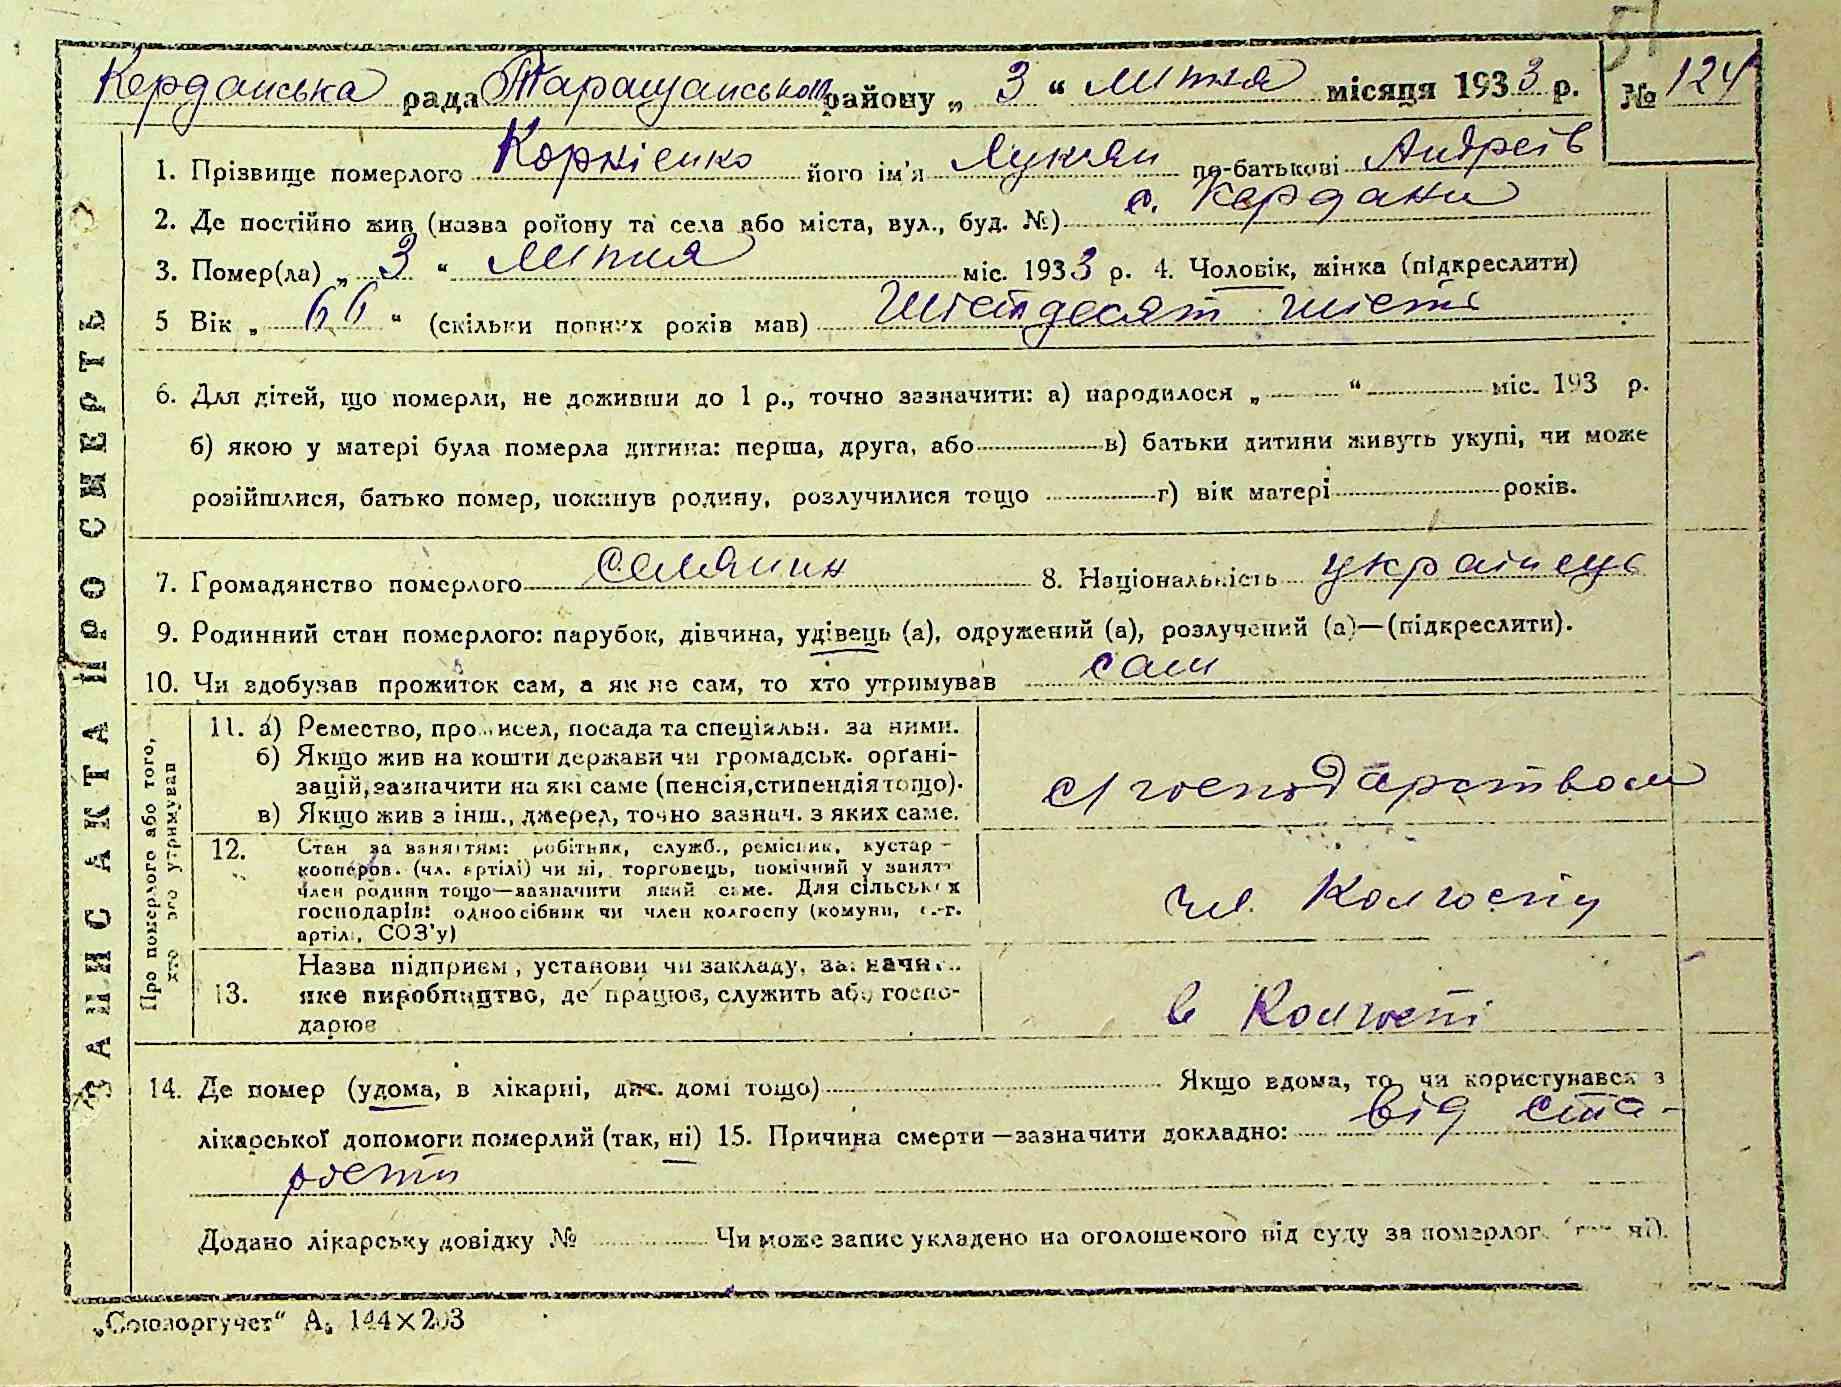 51
Керданська рада Таращанського району „ 3 “ липня місяця 1933 р. № 124
1. Прізвище померлого Корнієнко його ім'я Лукян по-батькові Андреїв
2. Де постійно жив (назва ройону та села або міста, вул., буд. №) с. Кердани
3. Помер(ла) „ 3 “ липня міс. 1933 р. 4. Чоловік, жінка (підкреслити)
5 Вік „ 66 “ (скільки повних років мав) Шістдесят шість
6. Для дітей, що померли, не доживши до 1 р., точно зазначити: а) народилося „ “ міс. 193 р.
б) якою у матері була померла дитина: перша, друга, або в) батьки дитини живуть укупі, чи може
розійшлися, батько помер, покинув родину, розлучилися тощо г) вік матері років.
7. Громадянство померлого селянин 8. Національність українець
9. Родинний стан померлого: парубок, дівчина, удівець (а), одружений (а), розлучений (а)—(підкреслити).
10. Чи здобував прожиток сам, а як не сам, то хто утримував сам
ЗАПИС АКТА ПРО СМЕРТЬ
Про померлого або того,
хто його утримував
11. а) Ремество, промисел, посада та спеціяльн. за ними.
б) Якщо жив на кошти держави чи громадськ. орґані-
зацій, зазначити на які саме (пенсія, стипендія тощо).
в) Якщо жив з інш., джерел, точно зазнач. з яких саме.
с/господарством
12. Стан за заняттям: робітник, служб., ремісник, кустар –
кооперов. (чл. артілі) чи ні, торговець, помічний у занятт
член родини тощо—зазначити який саме. Для сільських
господарів: одноосібник чи член колгоспу (комуни, с.-г.
артілі, СОЗ'у)
чл. Колгоспу
13. Назва підприєм, установи чи закладу, зазначит..
яке виробництво, де працює, служить або госпо-
дарює
в Колгоспі
14. Де помер (удома, в лікарні, дит. домі тощо) Якщо вдома, то чи користувався з
лікарської допомоги померлий (так, ні) 15. Причина смерти—зазначити докладно: від ста-
рости
Додано лікарську довідку № Чи може запис укладено на оголошеного від суду за померлог. (так ні).
„Союзоргучет“ А5 144×203